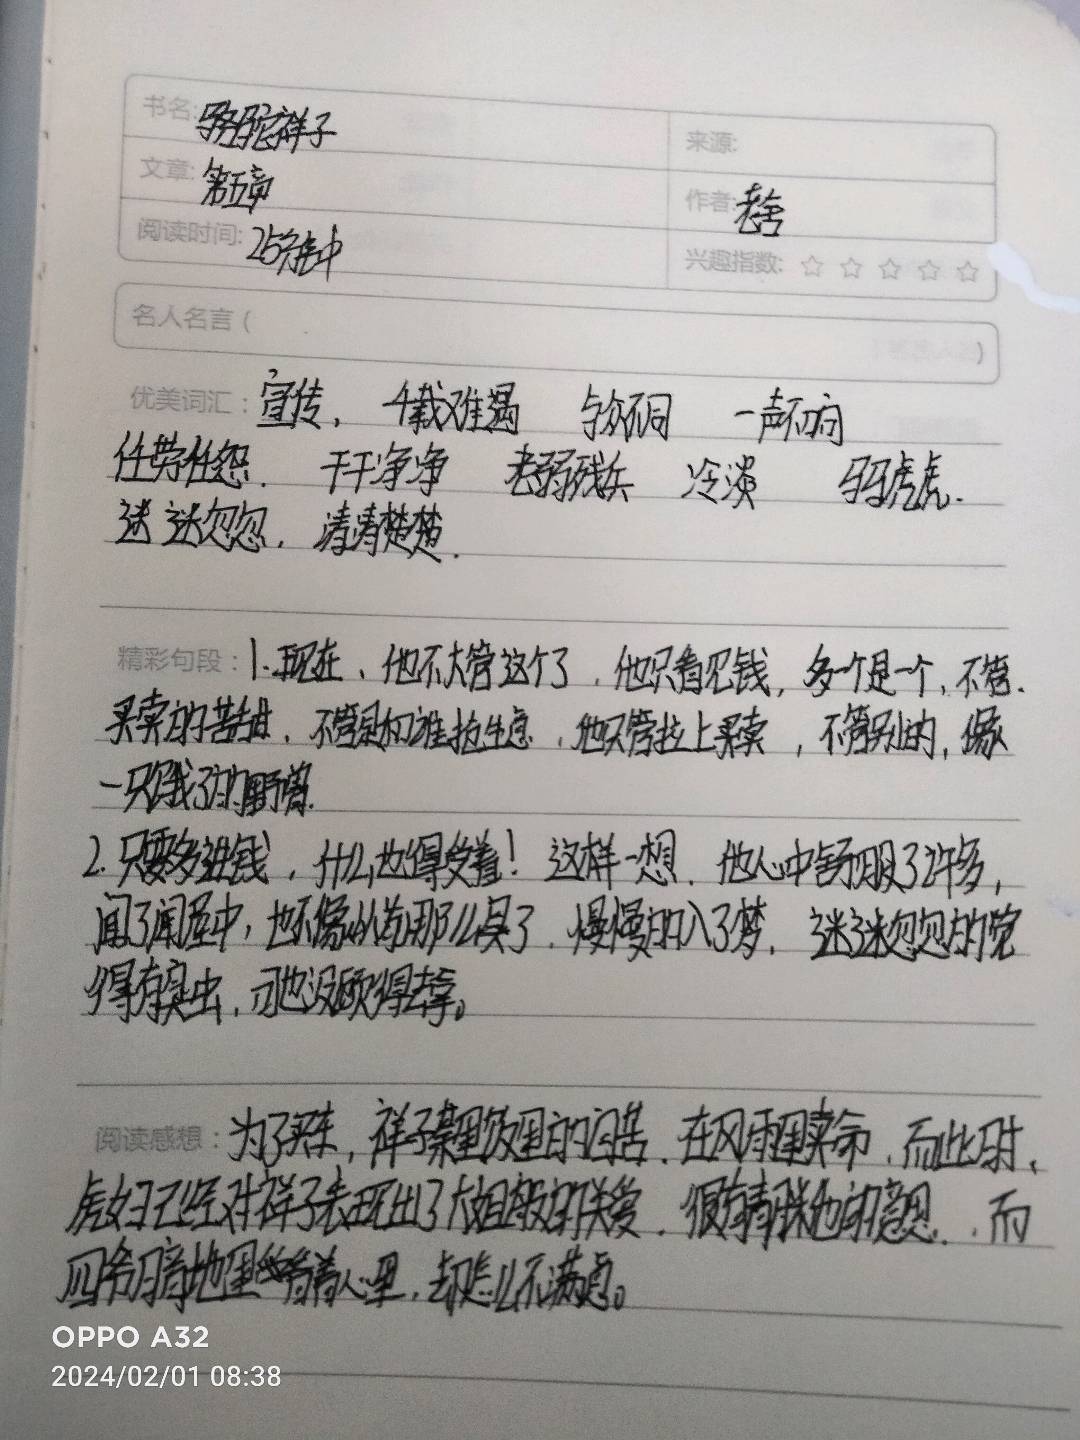 书名: 骆驼祥子
来源:
文章: 第五章
作者: 老舍
阅读时间: 25分钟
兴趣指数: ☆ ☆ ☆ ☆ ☆
名人名言 ( )
优美词汇: 宣传, 千载难遇 与众不同 一声不响
任劳任怨. 干干净净 老弱残兵 冷淡 马马虎虎.
迷迷忽忽, 清清楚楚.
精彩句段: 1.现在、他不大管这个了, 他只看见钱, 多一个是一个, 不管.
买卖的苦甜, 不管是和谁抢生意, 他只管拉上买卖, 不管别的, 像
一只饿了的野兽.
2.只要多进钱, 什么也得受着! 这样一想, 他心中舒服了许多,
闻了闻屋中, 也不像从前那么臭了, 慢慢的入了梦, 迷迷忽忽的觉
得有臭虫, 可也没顾得去拿。
阅读感想: 为了买车, 祥子 在风雨里卖命, 而此时,
虎妞已经对祥子表现出了大姐般的关爱, 很有青睐他的意思, 而
四爷 地里 看着 心里, 却怎么不满意。
OPPO A32
2024/02/01 08:38